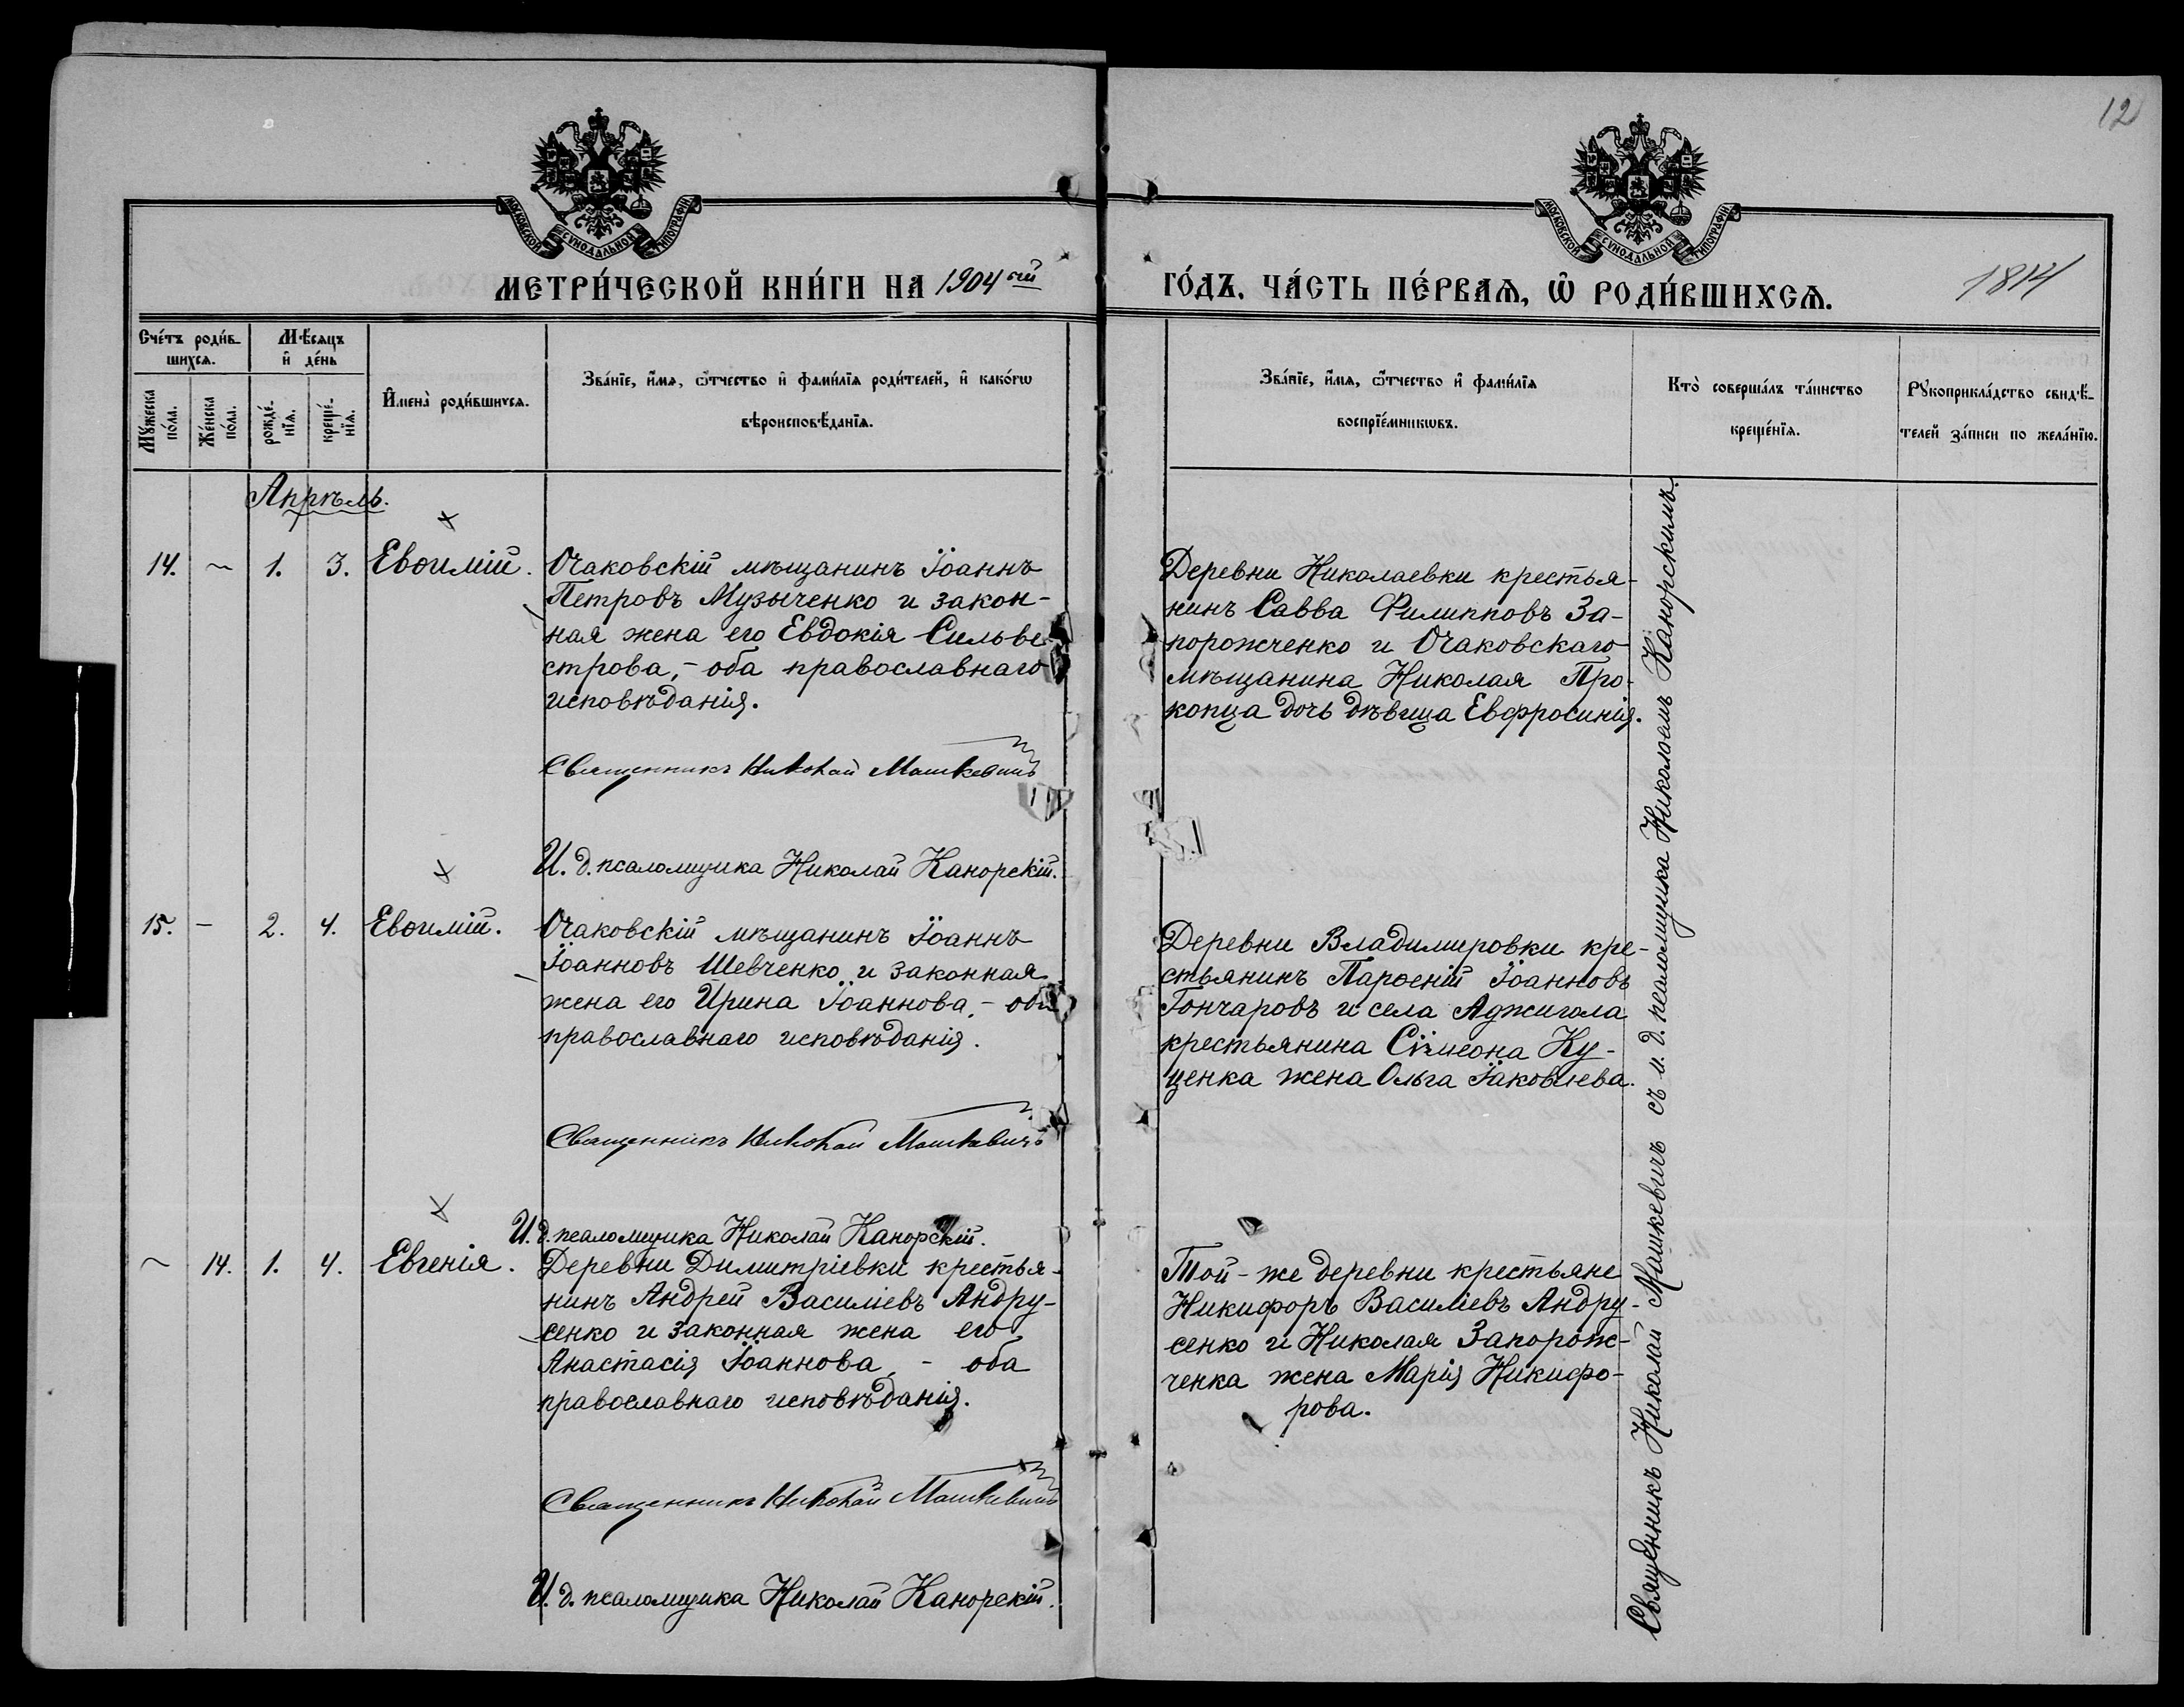 12
МОСКОВСКОЙ СѴНОДАЛЬНОЙ ТИПОГРАФІИ
МОСКОВСКОЙ СѴНОДАЛЬНОЙ ТИПОГРАФІИ
МЕТРИ́ЧЕСКОЙ КНИ́ГИ НА 1904ый
ГО́ДЪ, ЧА́СТЬ ПЕ́РВАѦ, Ѡ РОДИ́ВШИХСѦ.
1814
Сче́тъ роди́в-
шихся.
Мѣ́сяцъ
и де́нь
Мꙋ́жеска
по́ла.
Же́нска
по́ла.
рожде́-
нїѧ.
креще́-
нїѧ.
Имена̀ роди́вшихсѧ.
Зва́нїе, и́мѧ, ѻ́тчество и фами́лїѧ роди́телей, и како́гѡ
вѣроисповѣ́данїѧ.
Зва́нїе, и́мѧ, ѻ́тчество и фами́лїѧ
воспрїе́мникѡвъ.
Кто̀ соверша́лъ та́инство
креще́нїѧ.
Рꙋкоприкла́дство свидѣ́-
телей за́писи по жела́нїю.
Апрѣль.
14. ~ 1. 3. Евѳимій.
Очаковскій мѣщанинъ Іоаннъ
Петровъ Музыченко и закон-
ная жена его Евдокія Сильве
строва, - оба православнаго
исповѣданія.
Священникъ Николай Машкевичъ
И. д. псаломщика Николай Канорскій.
Деревни Николаевки крестья-
нинъ Савва Филипповъ За-
порожченко и Очаковскаго
мѣщанина Николая Про-
копца дочь дѣвица Евфросинія.
15. - 2. 4. Евѳимій.
Очаковскій мѣщанинъ Іоаннъ
Іоанновъ Шевченко и законная
жена его Ирина Іоаннова, - оба
православнаго исповѣданія.
Священникъ Николай Машкевичъ
И. д. псаломщика Николай Канорскій.
Деревни Владимировки кре-
стьянинъ Парѳеній Іоанновъ
Гончаровъ и села Аджигола
крестьянина Сімеона Ку-
ценка жена Ольга Іаковлева.
~ 14. 1. 4. Евгенія.
Деревни Димитріевки крестья-
нинъ Андрей Василіевъ Андру-
сенко и законная жена его
Анастасія Іоаннова, - оба
православнаго исповѣданія.
Священникъ Николай Машкевичъ
И. д. псаломщика Николай Канорскій.
Той-же деревни крестьяне
Никифоръ Василіевъ Андру-
сенко и Николая Запорож-
ченка жена Марія Никифо-
рова.
Священникъ Николай Машкевичъ съ и. д. псаломщика Николаемъ Канорскимъ.